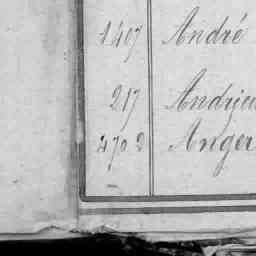 1407 André
217 Andrieu
4702 Anger